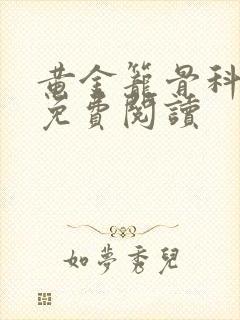 黄金籠骨科
免費閱讀
如夢秀兒